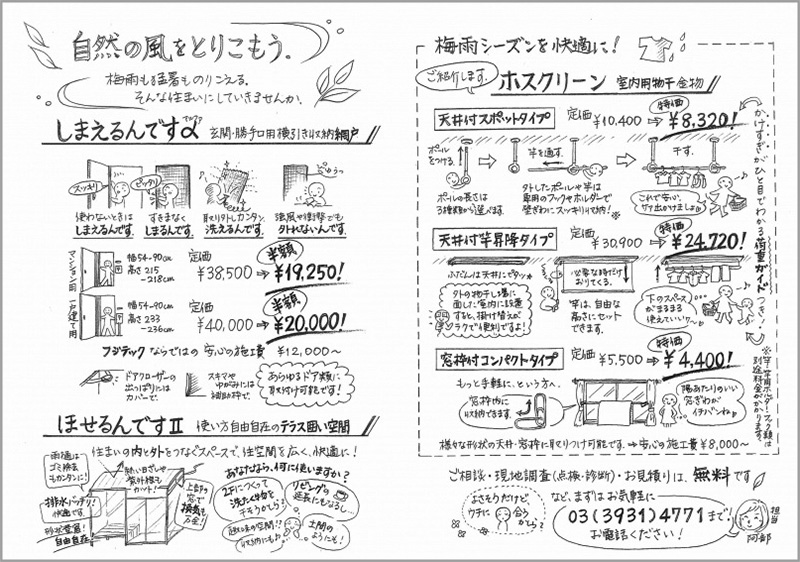 自然の風をとりこもう。
梅雨も猛暑ものりこえる。
そんな住まいにしていきませんか。
しまえるんですα
玄関・勝手口用横引き収納網戸
スッキリ
ピッタリ
使わないときは
しまえるんです。
すきまなく
しまるんです。
取り外しカンタン
洗えるんです。
強風や衝撃でも
外れないんです。
マンション用
幅54~90cm
高さ215
~218cm
定価
¥38,500→
半額
¥19,250!
一戸建て用
幅54~90cm
高さ233
~236cm
定価
¥40,000→
半額
¥20,000!
フジテックならではの安心の施工費 ¥12,000~
ドアクローザーの
出っぱりには
カバーで。
スキマや
ゆがみには
補助枠で。
あらゆるドア類に
取付け可能です!
ほせるんですⅡ
使い方自由自在のテラス囲い空間
住まいの内と外をつなぐスペースで、住空間を広く、快適に!
雨樋は
ゴミ掃除
もカンタンに!
熱い日ざしや
紫外線も
カット!
排水バッチリ!
快適です。
自由自在
上部の
窓で
換気も
万全!
あなたなら、何に使いますか?
2Fにつくって
洗たく物を
リビングの
延長にもなるし…
趣味の空間!!
収納にもお
土間の
ようにも!
梅雨シーズンを快適に!
ご紹介します。
ホスクリーン 室内用物干金物
天井付スポットタイプ
定価
¥10,400→
特価
¥8,320!
ポールを
つける。
竿を通す。
干す。
ポールの長さは
3種類から選べます。
外したポールや竿は
専用のフックやホルダーで
壁ぎわにスッキリ収納!※
これで安心。
天井付竿昇降タイプ
定価
¥30,900→
特価
¥24,720!
ふだんは天井にピタッ
必要な時だけ
おりてくる。
外の物干し場に
面した窓の内に設置
すると、掛け替えが
ラクで便利ですよ!
竿は、自由な
高さにセット
できます。
下のスペース
がまるまる
使えていい♡
かけすぎがひと目でわかる荷重ガイドつき!
窓枠付コンパクトタイプ
定価
¥5,500→
特価
¥4,400!
もっと手軽に、という方へ。
窓枠内に
収納できます。
陽あたりのいい
窓ぎわが
イチバンねっ
※竿・専用ホルダー・フック類は
別途料金がかかります。
様々な形状の天井・窓枠に取りつけ可能です。→安心の施工費¥8,000~
ご相談・現地調査(点検・診断)・お見積りは、無料です
よさそうだけど、
ウチに合う
かしら?
など、まずはお気軽に
03(3931)4771まで!
お電話ください!
担当
阿部